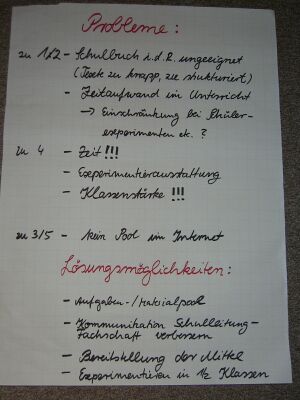 Probleme:
zu 1/2 - Schulbuch i.d.R. ungeeignet
(Texte zu knapp, zu strukturiert)
- Zeitaufwand im Unterricht
→ Einschränkung bei Schüler-
experimenten etc. ?
zu 4 - Zeit!!!
- Experimentierausstattung
- Klassenstärke !!!
zu 3/5 - kein Pool im Internet
Lösungsmöglichkeiten:
- Aufgaben-/Materialpool
- Kommunikation Schulleitung-
Fachschaft verbessern
- Bereitstellung der Mittel
- Experimentieren in 1/2 Klassen